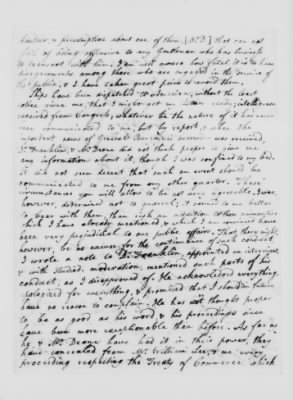 hauteur & presumption about one of them, (Mr D) that can not
fail of being offensive to any Gentleman who has business
to transact with him. I am well aware how fatal it is to have
disagreements among those who are engaged in the service of
the public, & I have taken great pains to avoid them.
Ships have been dispatched to America, without the least
notice given me, that I might get my letters ready; intelligence
received from Congress, whatever be the nature of it has never
been communicated to me, but by report, & when the
news of General Burgoyne's surrender was received,
Dr Franklin, & Mr Deane did not think proper to give me
any information about it, though I was confined to my bed.
It did not seem decent that such an event should be
communicated to me from any other quarter. These
circumstances you will allow to be not very agreeable, I was,
however, determined not to quarrel; it seemed to me better
to bear with them, than risk an addition to the
which I have already mentioned, & which I am convinced have
been very prejudicial to our public affairs. That there might,
however, be no excuse for the continuance of such conduct
I wrote a note to Dr Franklin, appointed an interview,
& with studied moderation, mentioned such parts of his
conduct, as I disapproved of. He acknowledged everything,
apologized for everything, & promised that I should in future
have no reason to complain. He has not thought proper
to be as good as his word, & his proceedings since
have been more exceptionable than before. As far as
he, & Mr Deane have it in their power, they
have concealed from Mr. William Lee, & me every
proceeding respecting the Treaty of Commerce which